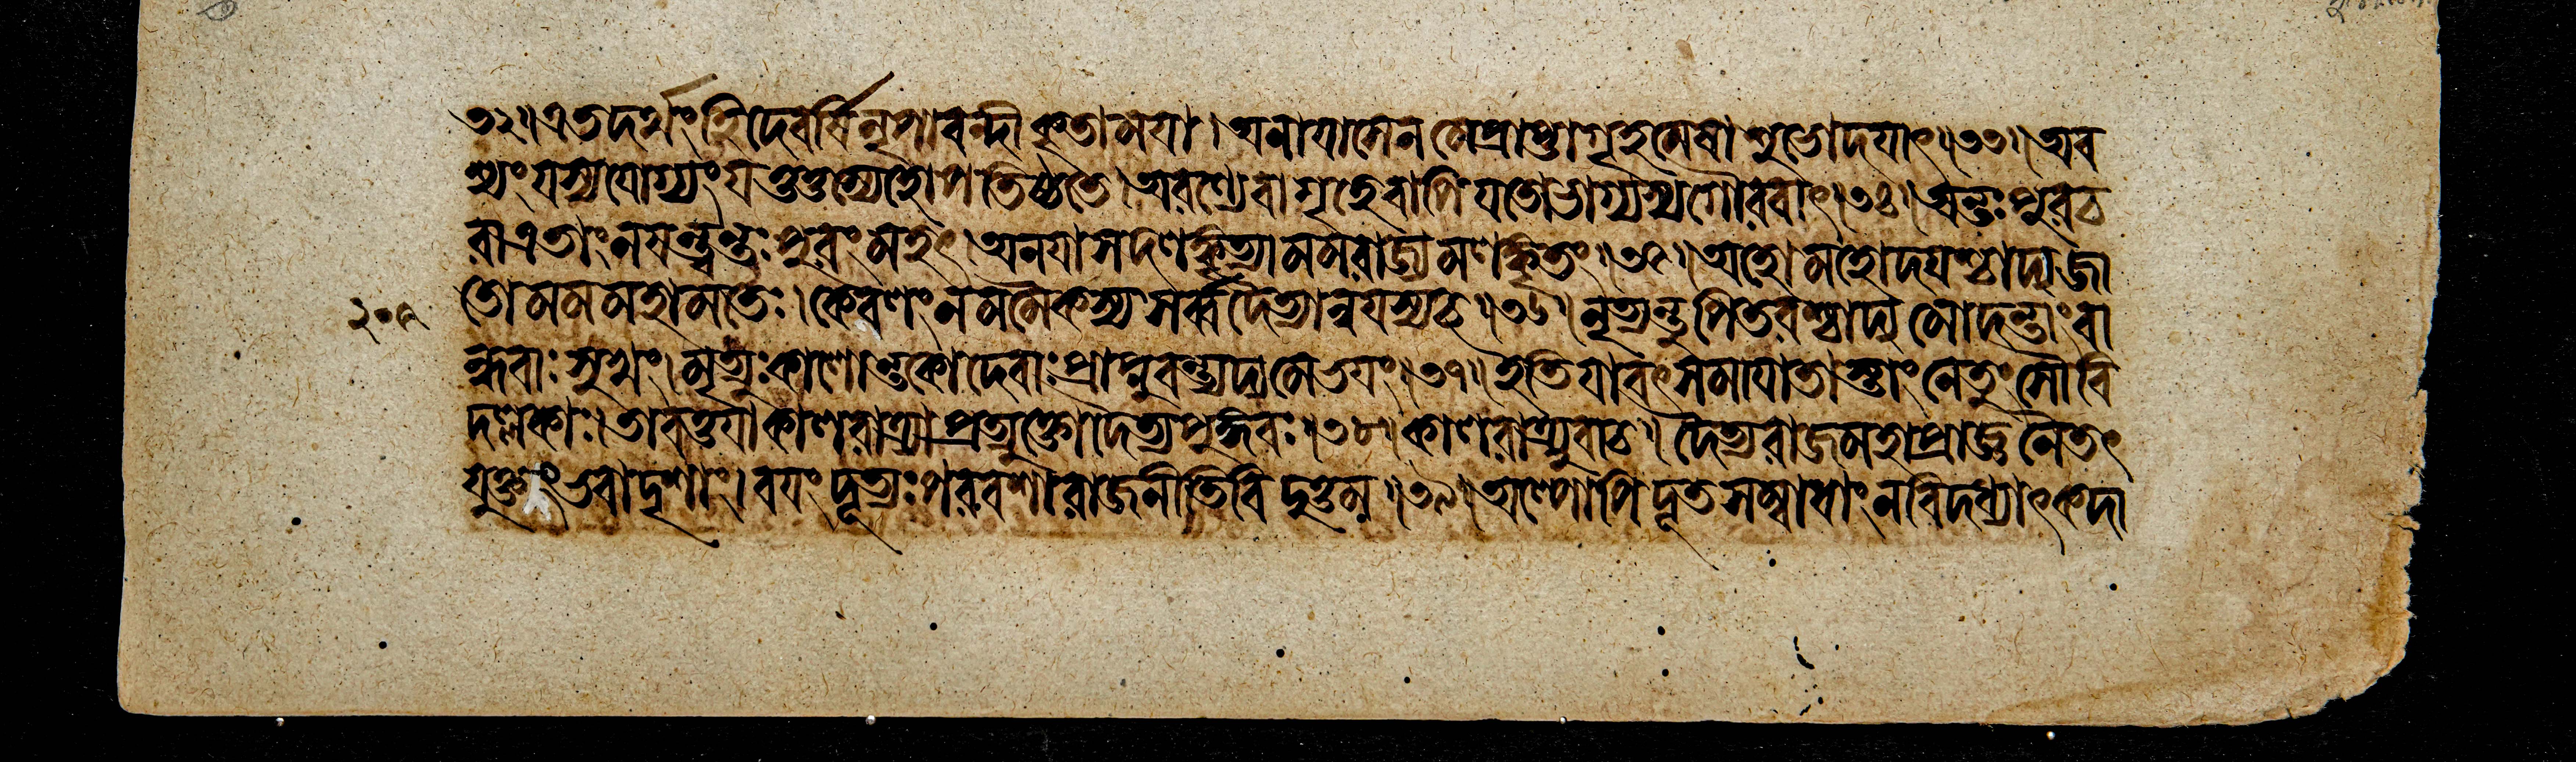 ৩২॥এতদর্থংহিদেবর্ষিনৃপাবন্দীকৃতাময়া।অনায়াসেনমেপ্রাপ্তাগৃহমেষাশুভোদয়াৎ॥৩৩॥অব
শ্যংযস্যযোগ্যংযত্তত্তস্যেহোপতিষ্ঠতে।অরণ্যেবাগৃহেবাপিযতোভাগ্যস্যগৌরবাৎ॥৩৪॥অন্তঃপুরচ
রাএতাংনয়ন্ত্বন্তঃপুরংমহৎ।অনয়াসদলঙ্কৃত্যামমরাজ্যমলঙ্কৃতং॥৩৫॥অহোমহোদয়শ্চাদ্যজা
২০৯ তোমমমহামতেঃ।কেবলংনমমৈকস্যসর্ব্বদৈত্যান্বয়স্যচ॥৩৬॥নৃত্যন্তুপিতরশ্চাদ্যমোদন্তাংবা
ন্ধবাঃসুখং।মৃত্যুঃকালোন্তকোদেবাঃপ্রাপ্নুবন্ত্বদ্যমেভয়ং॥৩৭॥ইতিযাবৎসমায়াতাস্তাংনেতুংসৌবি
দল্লকাঃ।তাবত্তয়াকালরাত্র্যাপ্রত্যুক্তোদৈত্যপুঙ্গবঃ॥৩৮॥কালরাত্র্যুবাচ॥দৈত্যরাজমহাপ্রাজ্ঞনৈতৎ
যুক্তংভবাদৃশাং।বয়ংদূত্যঃপরবশারাজনীতিবিদুত্তম॥৩৯॥অল্পোপিদূতসম্বাধাংনবিদধ্যাৎকদা